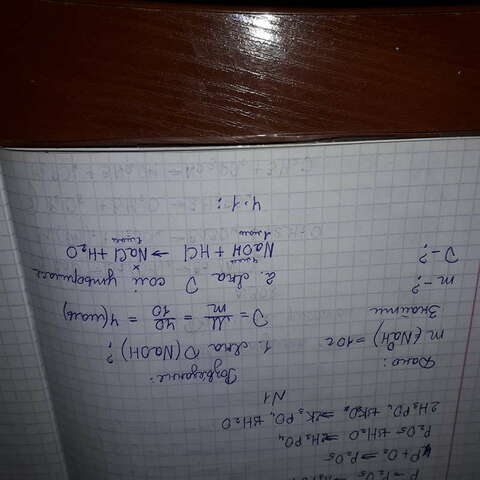 P → P₂O₅
4P + O₂ ⇒ P₂O₅
P₂O₅ + 3H₂O ⇒ 2H₃PO₄
2H₃PO₄ + 3K₂O ⇒ 2K₃PO₄ + 3H₂O
N1
Дано:
m (NaOH) = 10 г
Знайти
m - ?
ν - ?
Розв'язання:
1. Яка ν (NaOH) ?
ν = M/m = 40/10 = 4 (моль)
2. Яка ν солі утворилася
4 моль x
NaOH + HCl → NaCl + H₂O
1 моль 1 моль
4 : 1 :